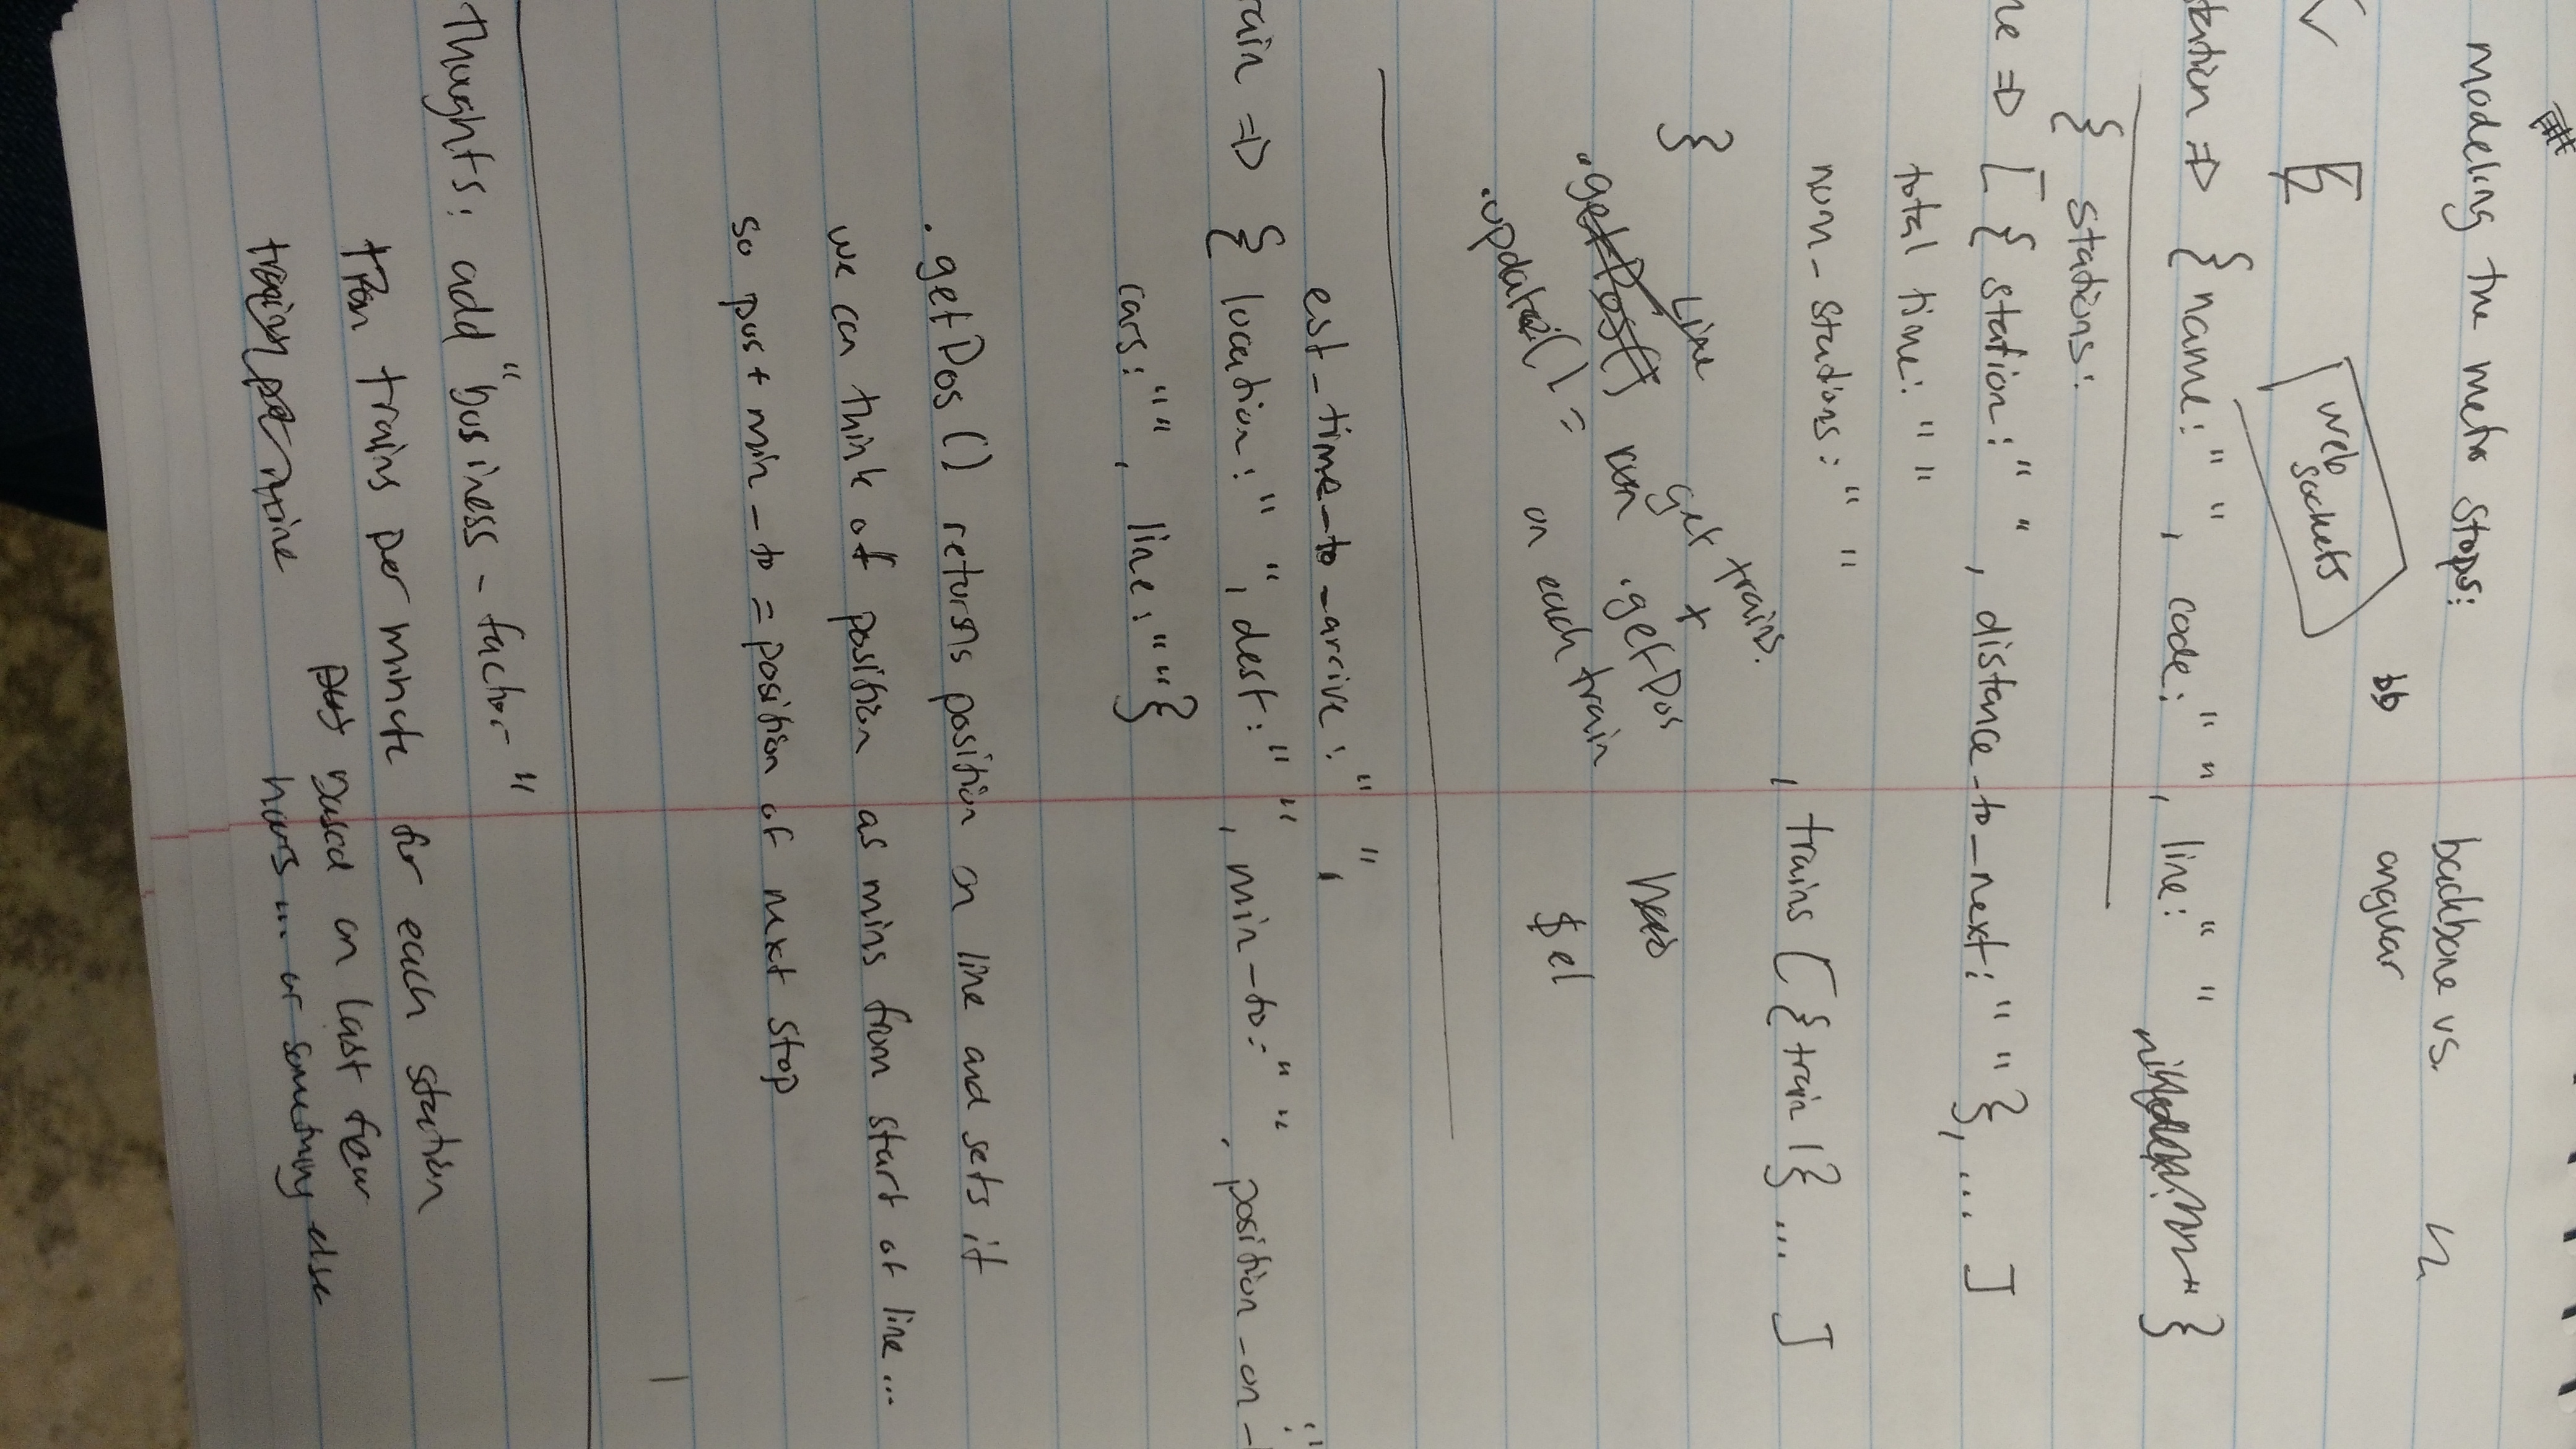 modeling the metro stops:
backbone vs.
angular
bb
web
sockets
tation => { name: " ", code: " ", line: " " }
{ stations:
ne => [ { station: " ", distance_to_next: " " }, ... ]
total time: " "
num_stations: " "
, trains [ { train 1 } ... ]
}
Line
.getPos()
get trains.
+
run .getPos
on each train
.update() =
$el
est_time_to_arrive: " ",
rain => { location: " ", dest: " ", min-to: " ", position-on-
cars: "", line: "" }
.getPos() returns position on line and sets it
we can think of position as mins from start of line...
so pos + min_to = position of next stop
Thoughts: add "business-factor"
trains per minute for each station
based on last few
hours ... or something else